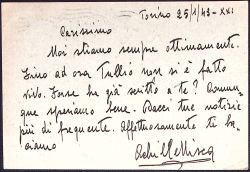 Torino 25/1/43-XXI
Carissimo
Noi stiamo sempre ottimamente.
Sino ad ora Tullio non si è fatto
vivo. Forse ha già scritto a te? Comun-
que speriamo bene. Dacci tue notizie
più di frequente. Affettuosamente ti ba-
ciamo